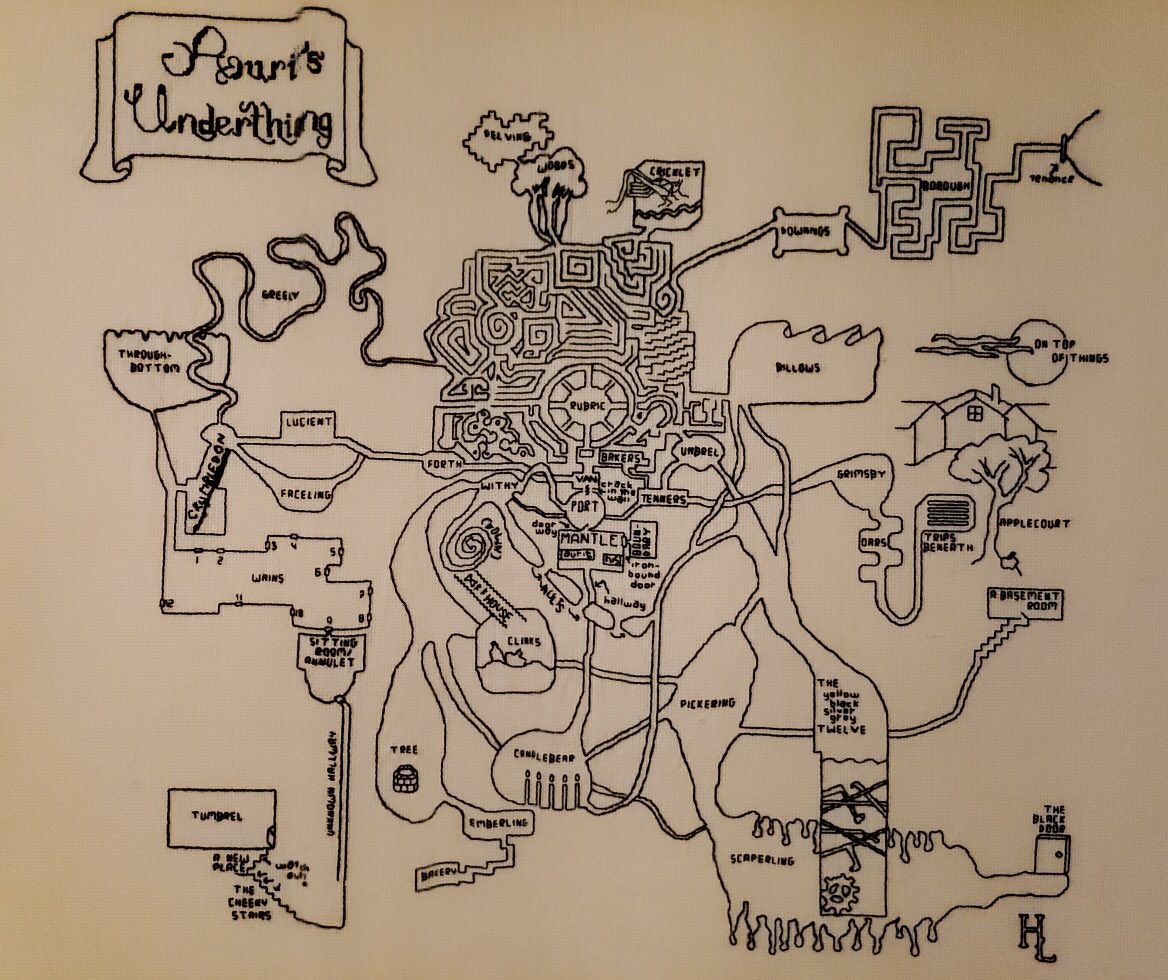 Auri's
Underthing
DELVING
WOODS
CRICKLET
DOWNINGS
BOROUGH
TENANCE
GREELY
THROUGH-
BOTTOM
LUCIENT
CRUMBLEDON
FACELING
FORTH
RUBRIC
BAKERS
UMBREL
BILLOWS
ON TOP
OF THINGS
WITHY
VAN
crack
in the
wall
PORT
TENNERS
GRIMSBY
door
way
MANTLE
auris
his
BOUN-
DARY
iron-
bound
door
hallway
DARS
TRIPS
BENEATH
APPLECOURT
A BASEMENT
ROOM
WAINS
1
2
3
4
5
6
7
8
9
10
11
12
SITTING
ROOM/
ANNULET
UNKNOWN HALLWAY
CLINKS
PICKERING
THE
yellow
black
silver
gray
TWELVE
TREE
CANDLEBEAR
EMBERLING
BAKERY
TUMBREL
A NEW
PLACE
watch
out!
THE
CHEEKY
STAIRS
SCAPERLING
THE
BLACK
DOOR
HL